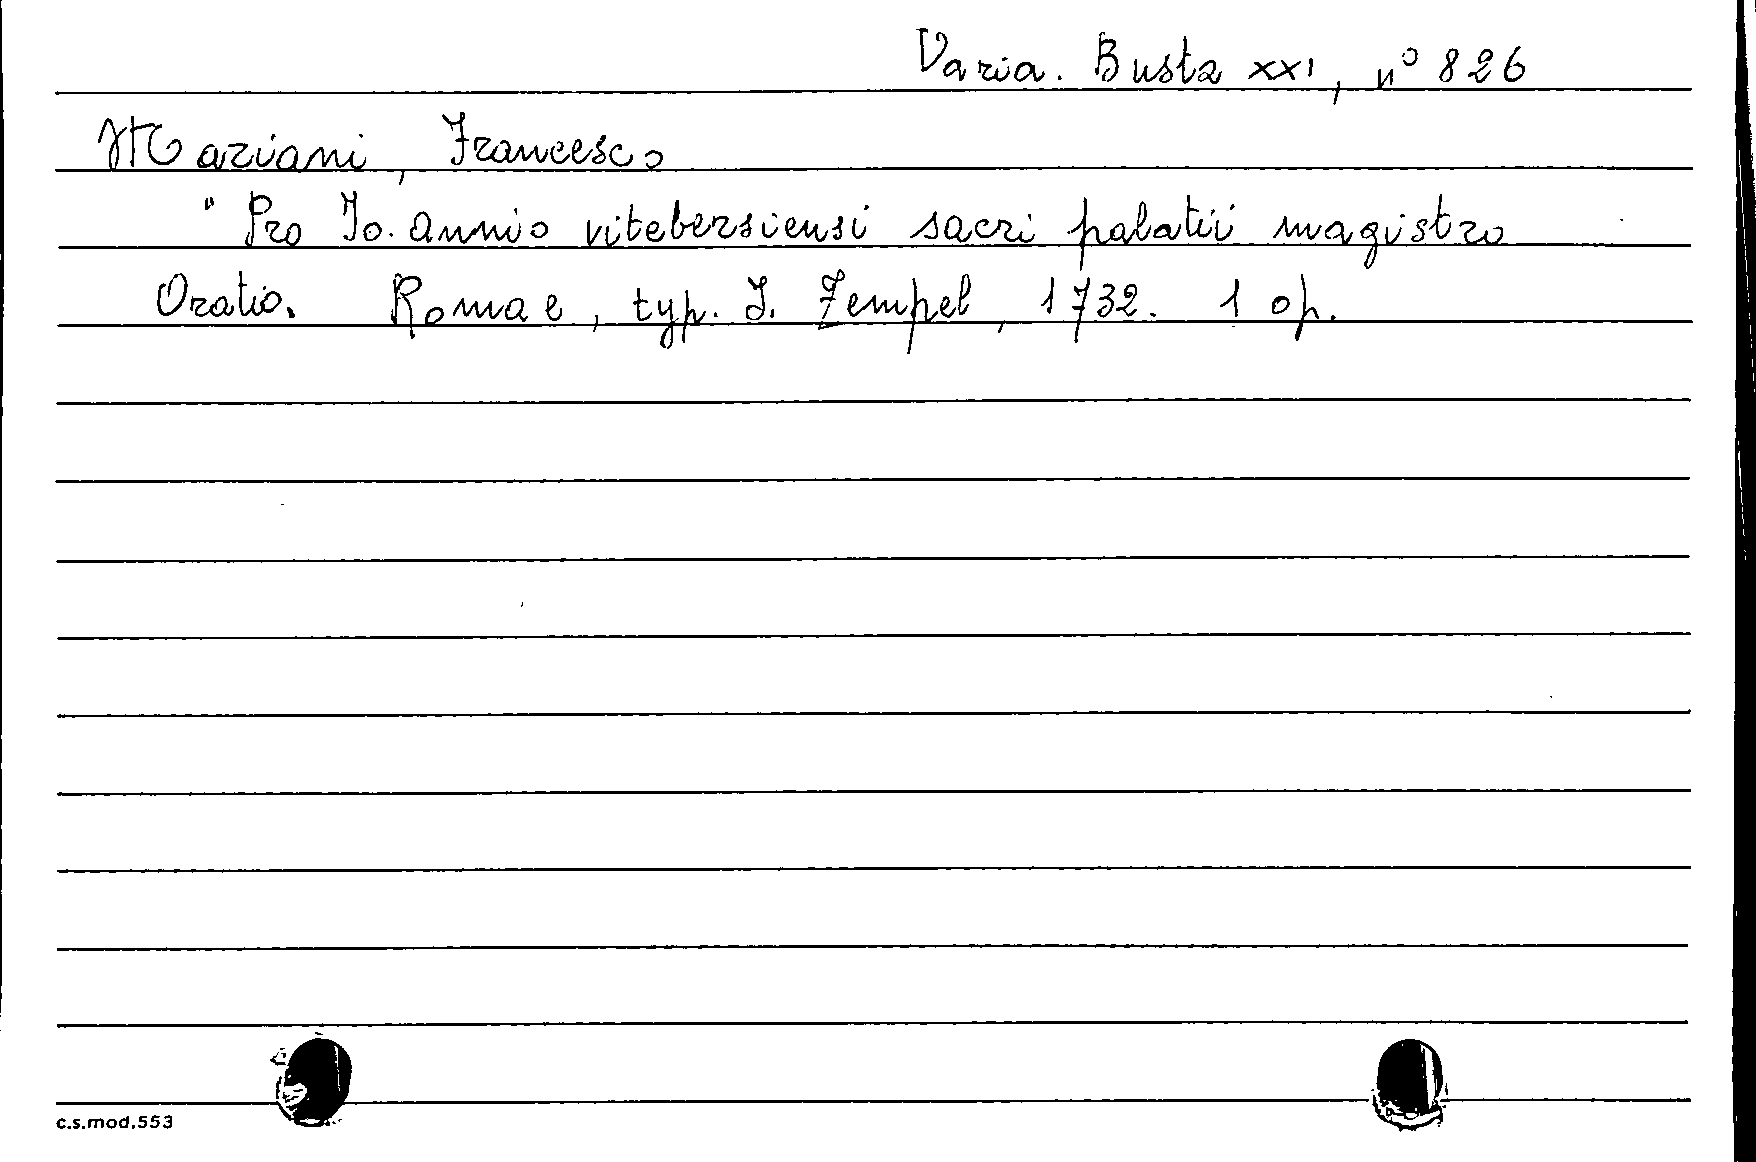 Varia. Busta XXI, n° 826
Mariani, Francesco
" Pro Io. Annio vitebersiensi sacri palatii magistro
Oratio. Romae, typ. I. Zempel, 1732. 1 op.
c.s.mod.553